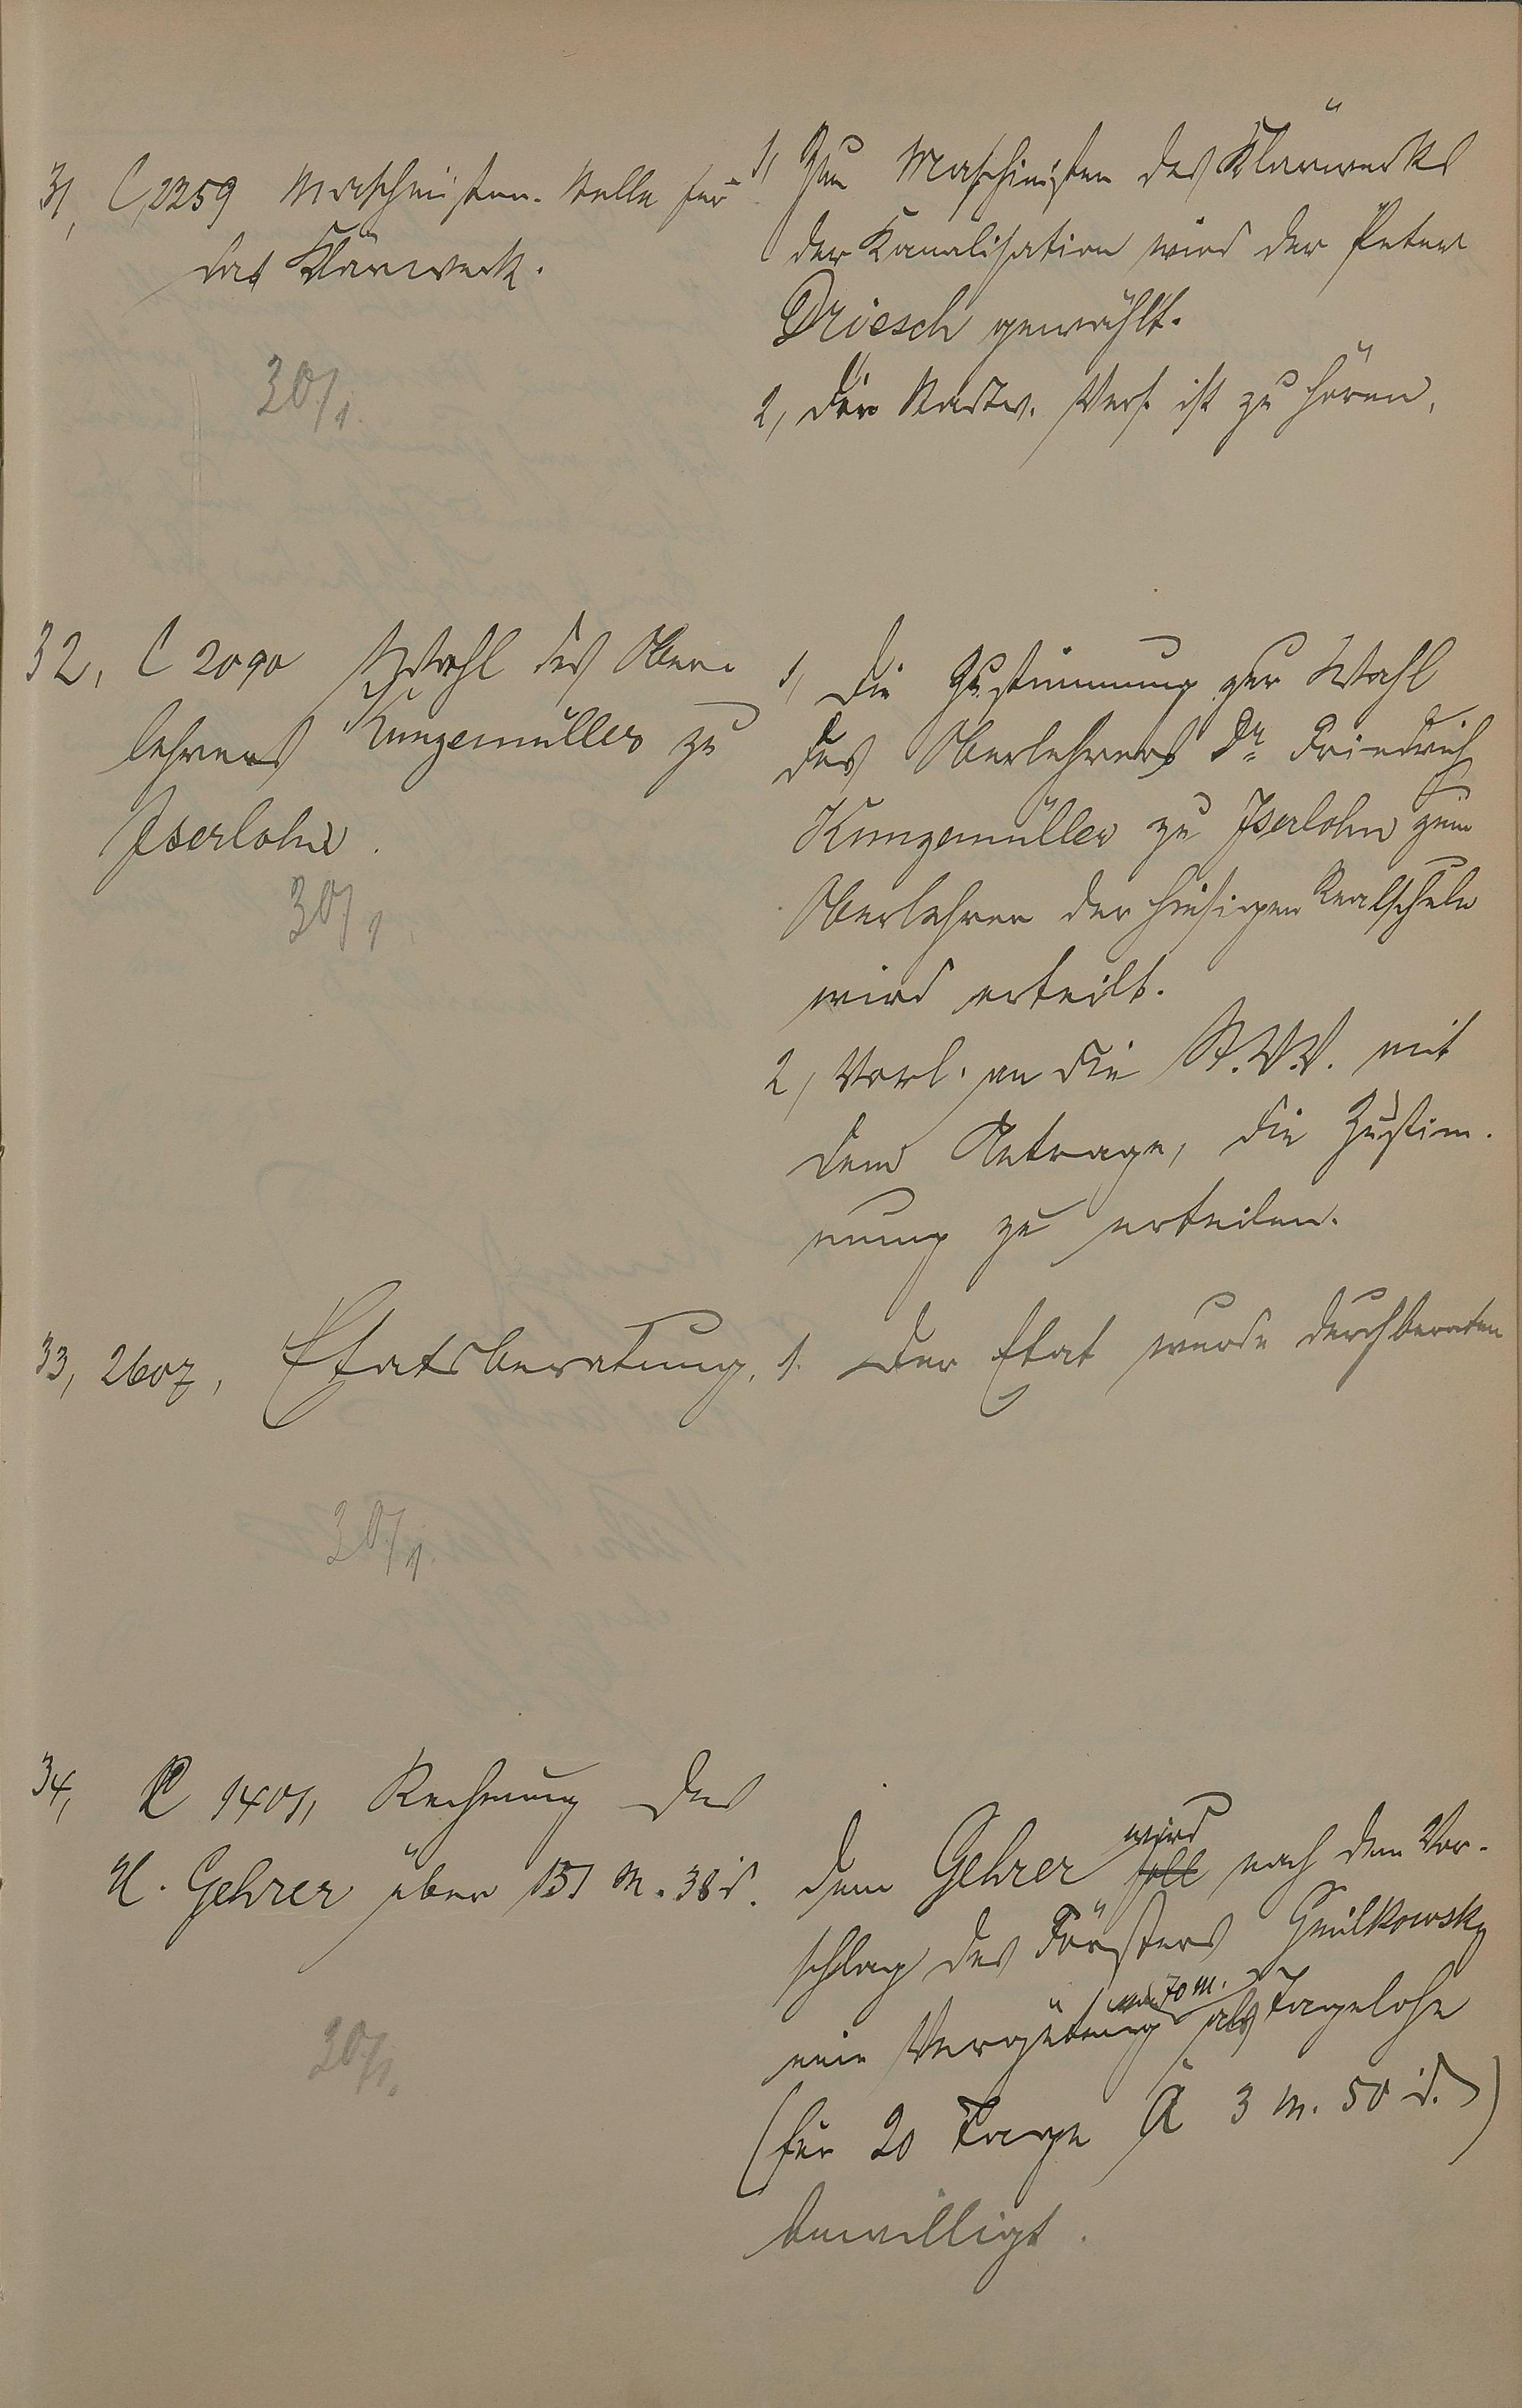 31, C 2259 Maschinisten-Stelle für
das Klärwerk.
30/1.
1, Zum Maschinisten des Klärwerks
der Kanalisation wird der Peter
Driesch gewählt.
2, Die Stadtv. Vers. ist zu hören.
32, C 2090 Wahl des Ober-
lehrers Kunzemüller zu
Iserlohn.
30/1.
1, Die Zustimmung zur Wahl
des Oberlehrers Dr. Friedrich
Kunzemüller zu Iserlohn zum
Oberlehrer der hiesigen Realschule
wird erteilt.
2, Vorl. an die St.V.V. mit
dem Antrage, die Zustim-
mung zu erteilen.
33, 2607, Etatsberatung.
30/1.
1. Der Etat wurde durchberaten
34, C 1401, Rechnung des
H. Gehrer über 151 M. 38 d.
30/1.
Dem Gehrer soll wird nach dem Vor-
schlag des Försters
eine Vergütung von 70 M. als Tagelohn
(für 20 Tage à 3 M. 50 d.)
bewilligt.